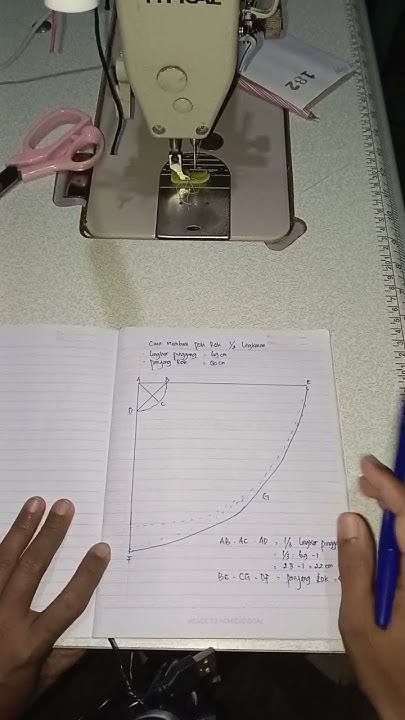 TYPICAL
182
Cara membuat pola Rok 1/2 lingkaran
- lingkar pinggang = 69 cm
- panjang Rok = 80 cm
A B E
D C
G
F
AB - AC - AD = 1/3 lingkar pingga
= 1/3 . 69 - 1
= 23 - 1 = 22 cm
BE - CG - DF = panjang Rok -